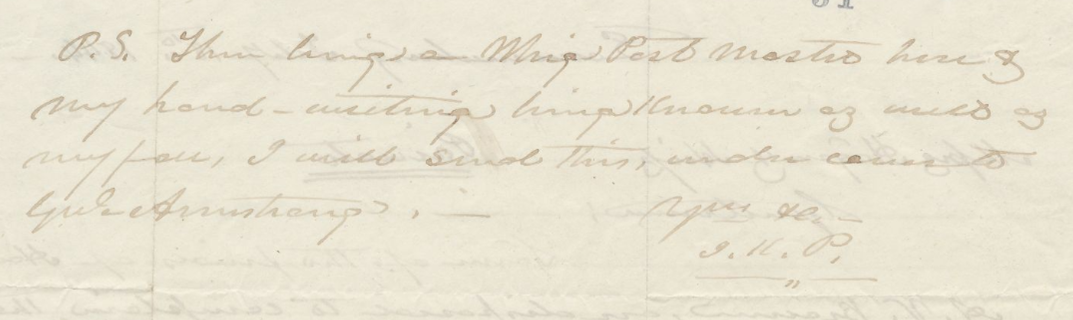 P.S. There being a Whig Post Master here &
my hand-writing being known as well as
my face, I will send this, under cover to
Genl. Armstrong. —
Yours &c.
J. K. P.